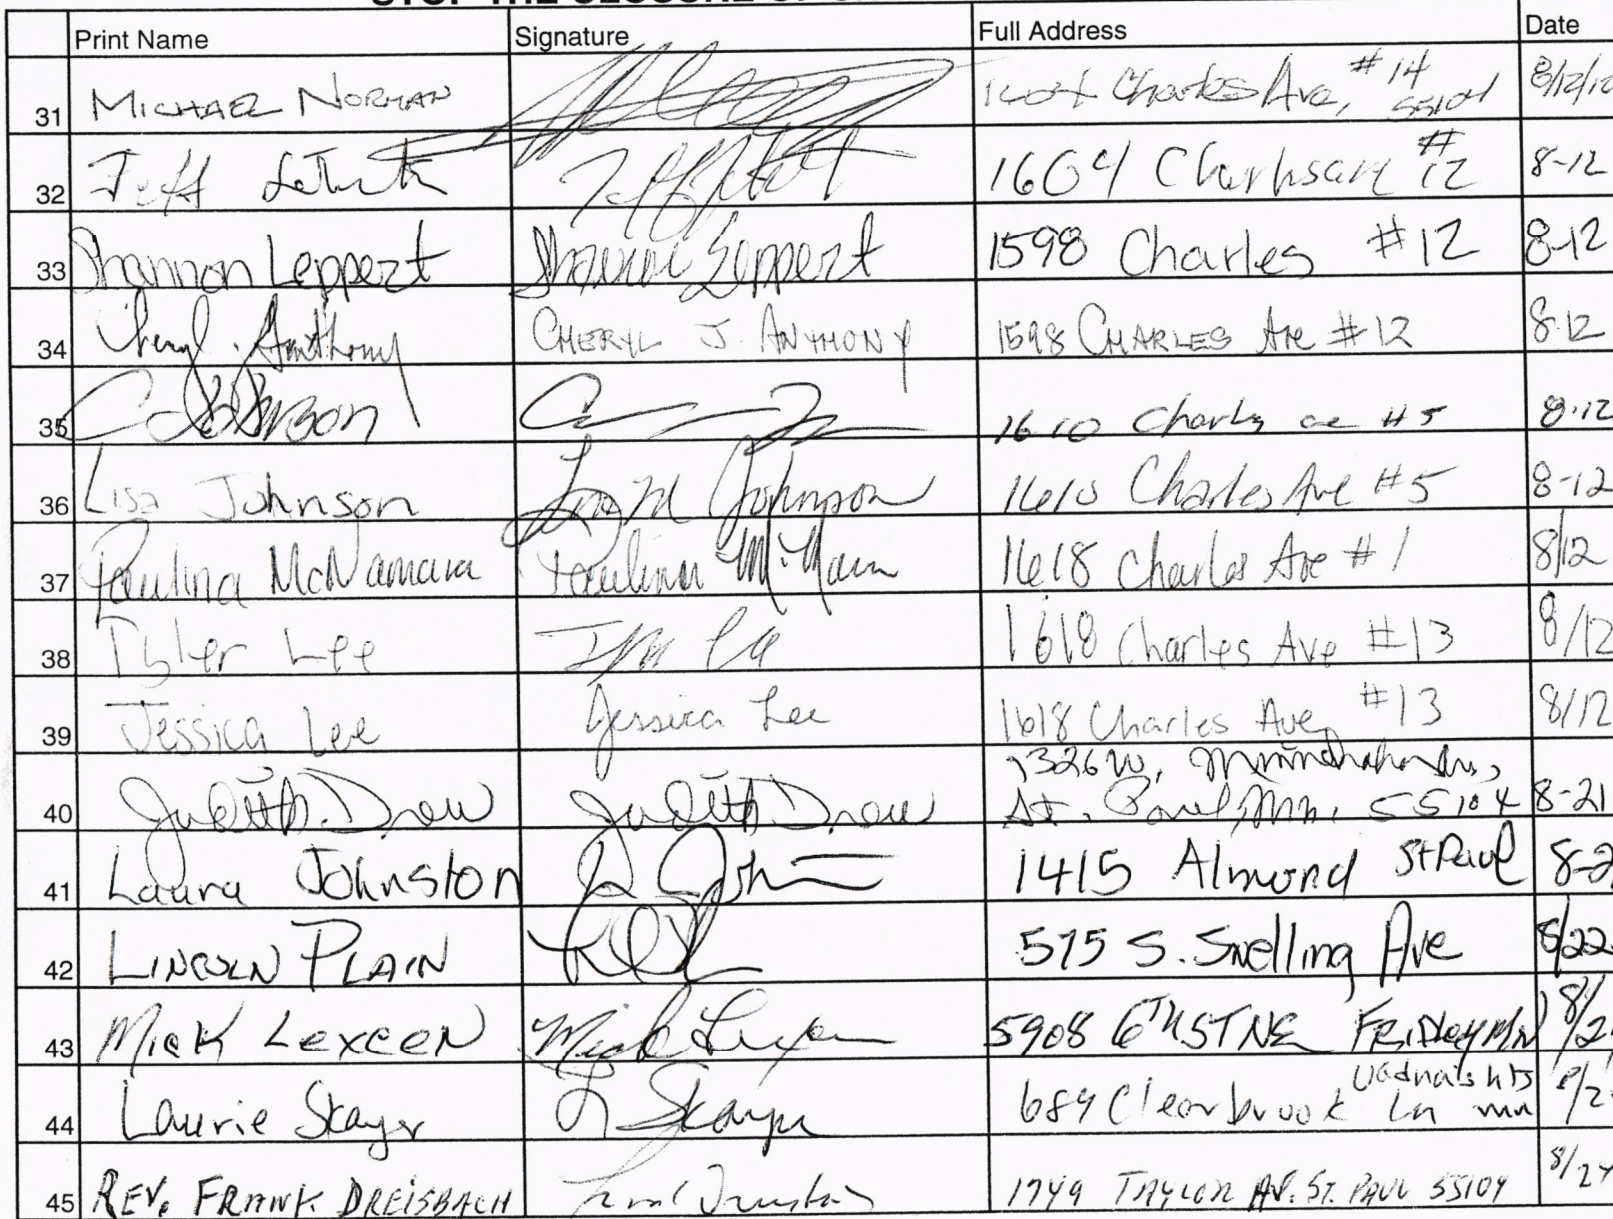 STOP THE CLOSURE OF
Print Name Signature Full Address Date
31 MICHAEL NORMAN 1604 Charles Ave, #14 55104 8/12/10
32 Jeff 1604 #12 8-12
33 Shannon Leppert Shannon Leppert 1598 Charles #12 8-12
34 Cheryl Anthony CHERYL J. ANTHONY 1598 CHARLES Ave #12 8-12
35 1610 Charles ave #5 8-12
36 Lisa Johnson Lisa M Johnson 1610 Charles Ave #5 8-12
37 Paulina McNamara Paulina 1618 Charles Ave #1 8/12
38 Tyler Lee 1618 Charles Ave #13 8/12
39 Jessica Lee Jessica Lee 1618 Charles Ave #13 8/12
1326 W.
40 Judith Drew Judith Drew St. Paul, Mn. 55104 8-21
41 Laura Johnston 1415 Almond St Paul 8-2
42 LINCOLN PLAIN 575 S. Snelling Ave 8/22
43 Mick Lexcen Mick Lexcen 5908 6TH ST NE FRIDLEY MN 8/2
44 Laurie Skayer L Skayer 689 Clearbrook Ln Vadnais hts mn 8/2
45 REV. FRANK DREISBACH 1749 TAYLOR AV. ST. PAUL 55104 8/24